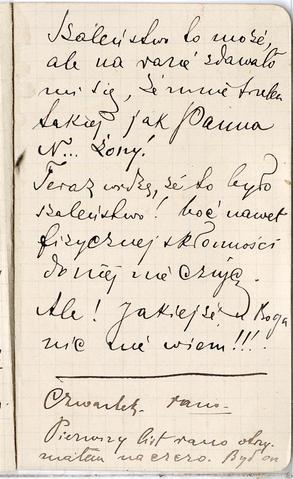 Szaleństwo to może,
ale na razie zdawało
mi się, że mnie trzeba
takiej jak Panna
N... żony!
Teraz widzę, że to było
szaleństwo! boć nawet
fizycznej skłonności
do niej nie czuję.
Ale! Jakiejże u Boga
nic nie wiem!!!
Czwartek. rano.
Pierwszy list rano otrzy-
małem na czczo. Był on